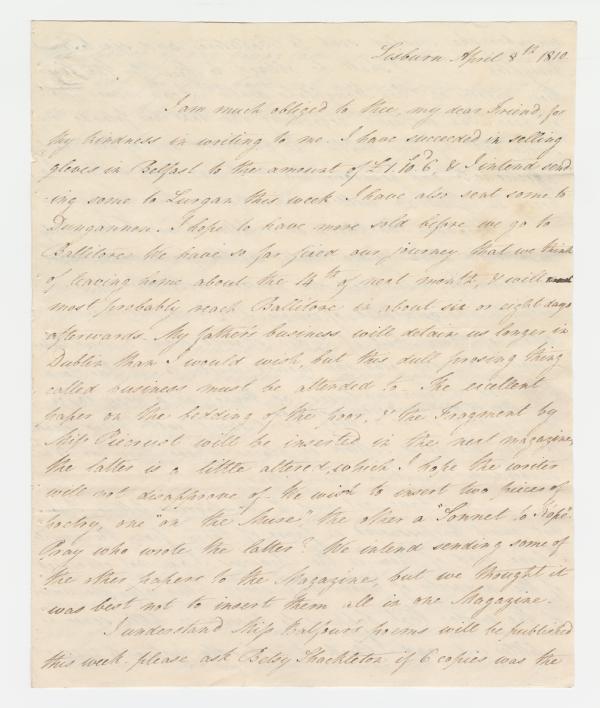 Lisburn April 8th 1810
I am much obliged to thee, my dear Friend, for
thy kindness in writing to me. I have succeeded in selling
gloves in Belfast to the amount of £1.10.6, & I intend send
ing some to Lurgan this week I have also sent some to
Dungannon. I hope to have more sold before we go to
Ballitore. We have so far fixed our journey that we think
of leaving home about the 14th of next month, & will
most probably reach Ballitore in about six or eight days
afterwards. My father's business will detain us longer in
Dublin than I would wish, but this dull prosing thing
called business must be attended to. The excellent
paper on the bedding of the poor, & the Fragment by
Miss Piecrust will be inserted in the next magazine,
the latter is a little altered, which I hope the writer
will not disapprove of. We wish to insert two pieces of
poetry, one "on the Muse," the other a "Sonnet to Hope".
Pray who wrote the latter? We intend sending some of
the other papers to the Magazine, but we thought it
was best not to insert them all in one Magazine.
I understand Miss Balfour's poems will be published
this week. please ask Betsy Shackleton if 6 copies was the